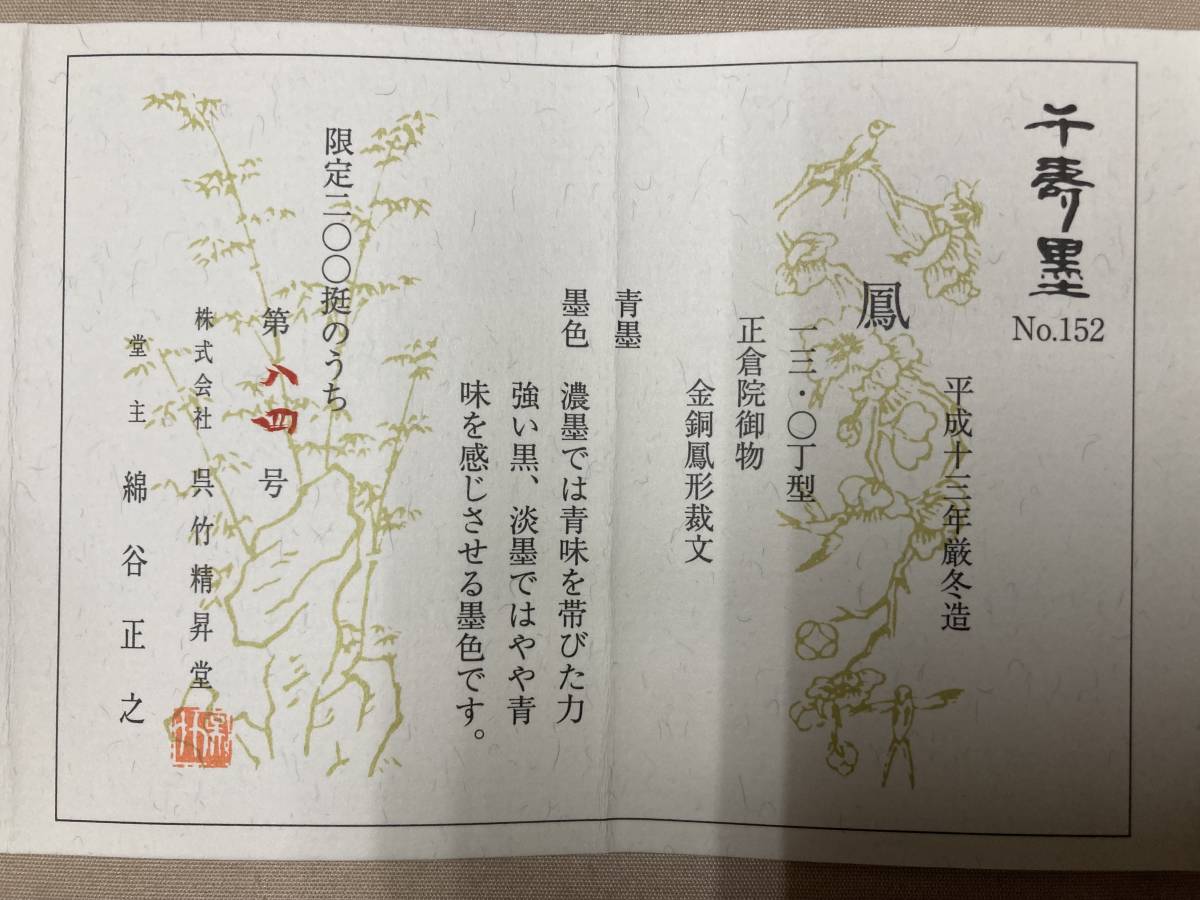 千寿墨
No.152
平成十三年厳冬造
鳳
一三・〇丁型
正倉院御物
金銅鳳形裁文
青墨
墨色 濃墨では青味を帯びた力
強い黒、淡墨ではやや青
味を感じさせる墨色です。
限定二〇〇挺のうち
第八四号
株式会社 呉竹精昇堂
堂主 綿谷正之